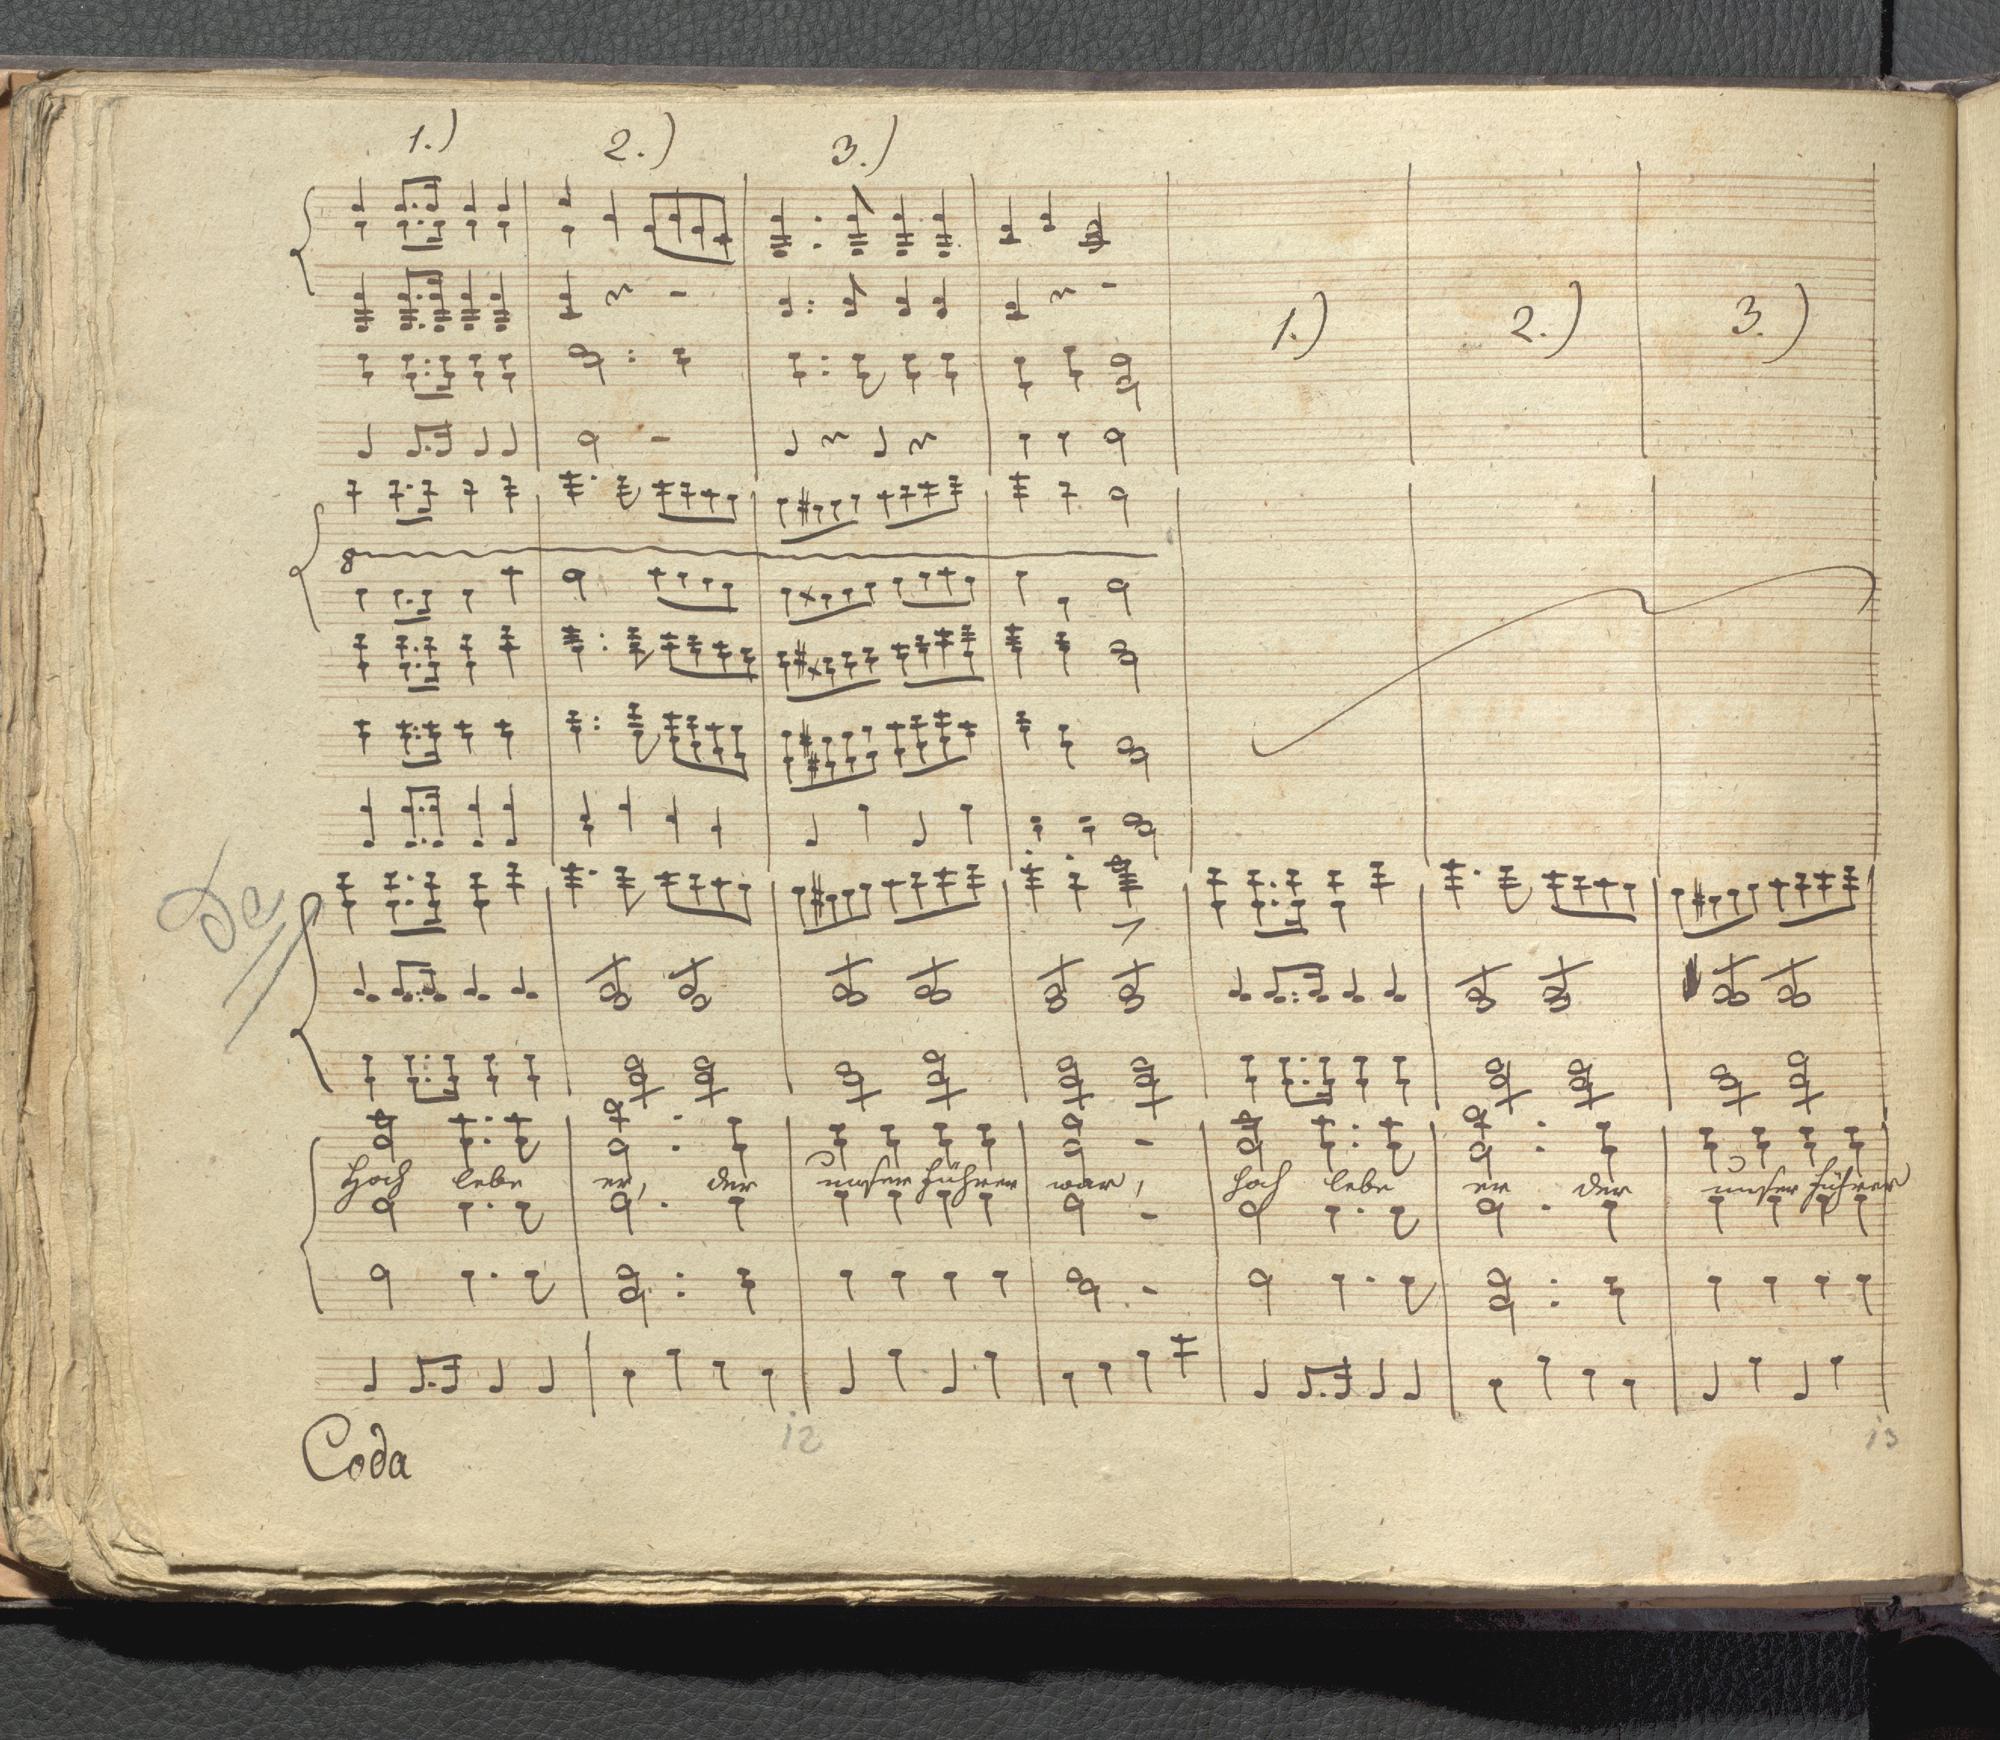 1.) 2.) 3.)
1.) 2.) 3.)
8
Da
Hoch lebe er, der unser Führer war, hoch lebe er der unser Führer
12 13
Coda